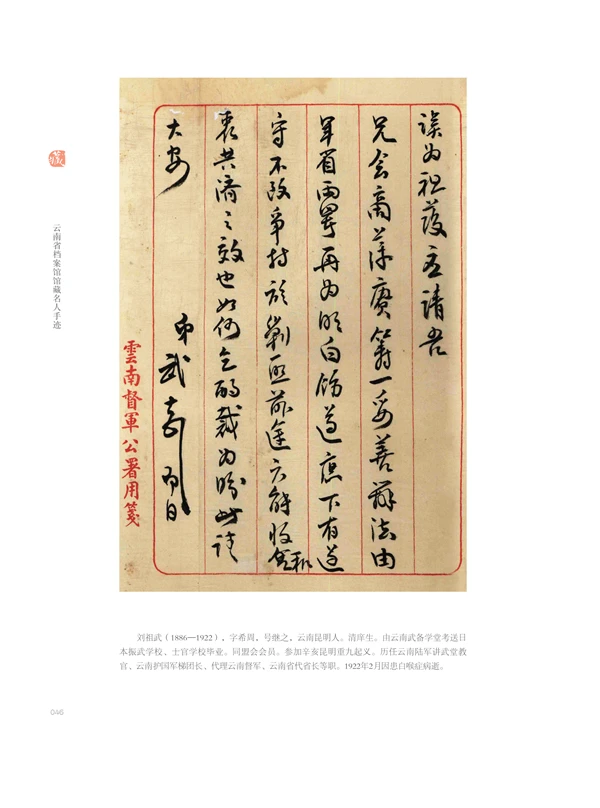 为袒護 請吾
兄会商蓂賡籌一妥善辦法由
軍省兩署再为明白飭遵庶下有遵
守不致争持於剿匪前途 能收和
衷共济之效也如何乞酌裁为盼此請
大安
弟武
雲南督軍公署用箋
藏
云南省档案馆馆藏名人手迹
刘祖武（1886—1922），字希周，号继之，云南昆明人。清庠生。由云南武备学堂考送日
本振武学校、士官学校毕业。同盟会会员。参加辛亥昆明重九起义。历任云南陆军讲武堂教
官、云南护国军梯团长、代理云南督军、云南省代省长等职。1922年2月因患白喉症病逝。
046